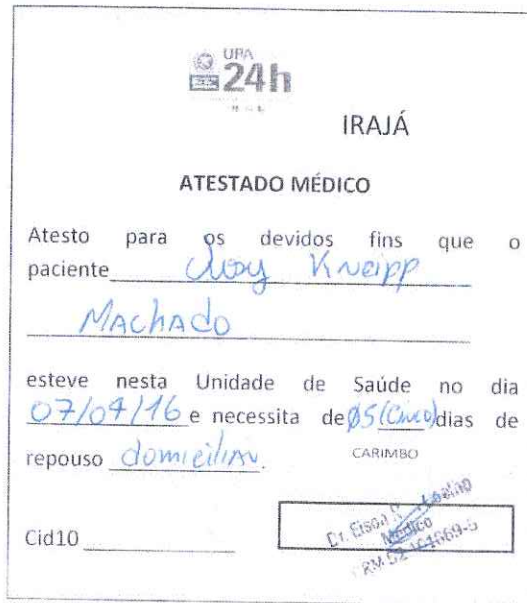 UPA
24h
IRAJÁ
ATESTADO MÉDICO
Atesto para os devidos fins que o
paciente Kneipp
Machado
esteve nesta Unidade de Saúde no dia
07/04/16 e necessita de 05 (Cinco) dias de
repouso domiciliar.
CARIMBO
Cid10
Dr.
Médico
CRM 52